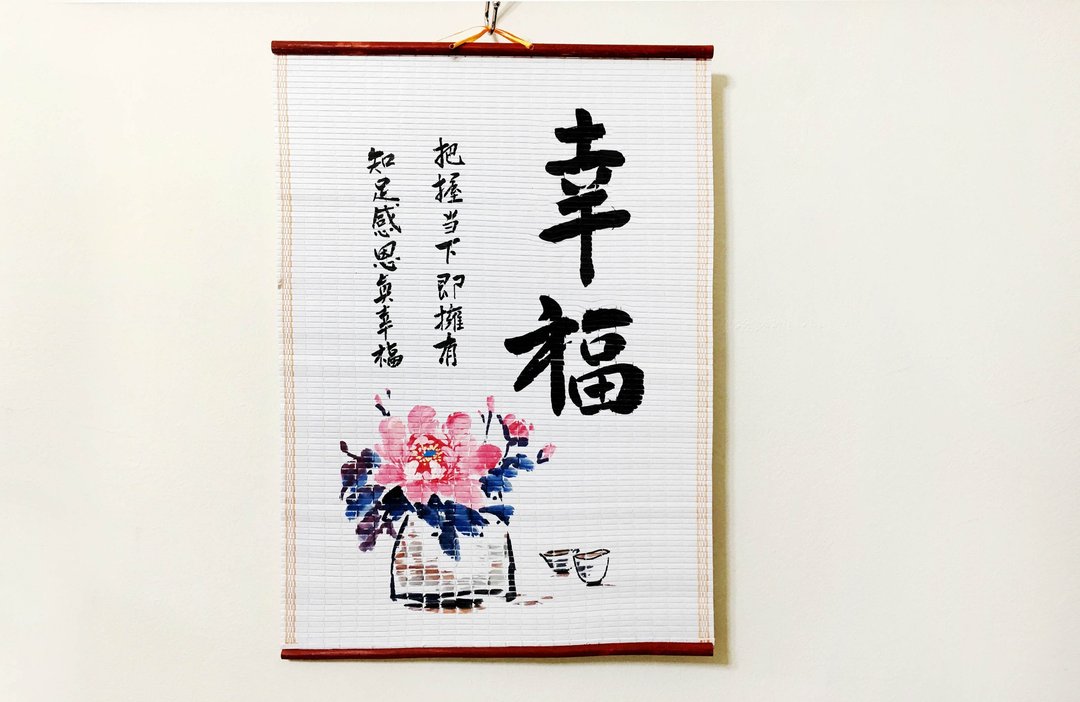 幸福
把握当下即擁有
知足感恩真幸福